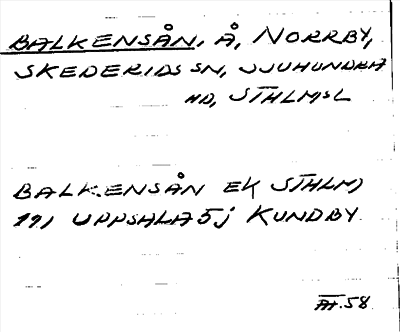 BALKENSÅN, Å, NORRBY,
SKEDERIDS SN, SJUHUNDRA
HD, STHLMSL
BALKENSÅN EK STHLM)
191 UPPSALA 5j KUNDBY
58